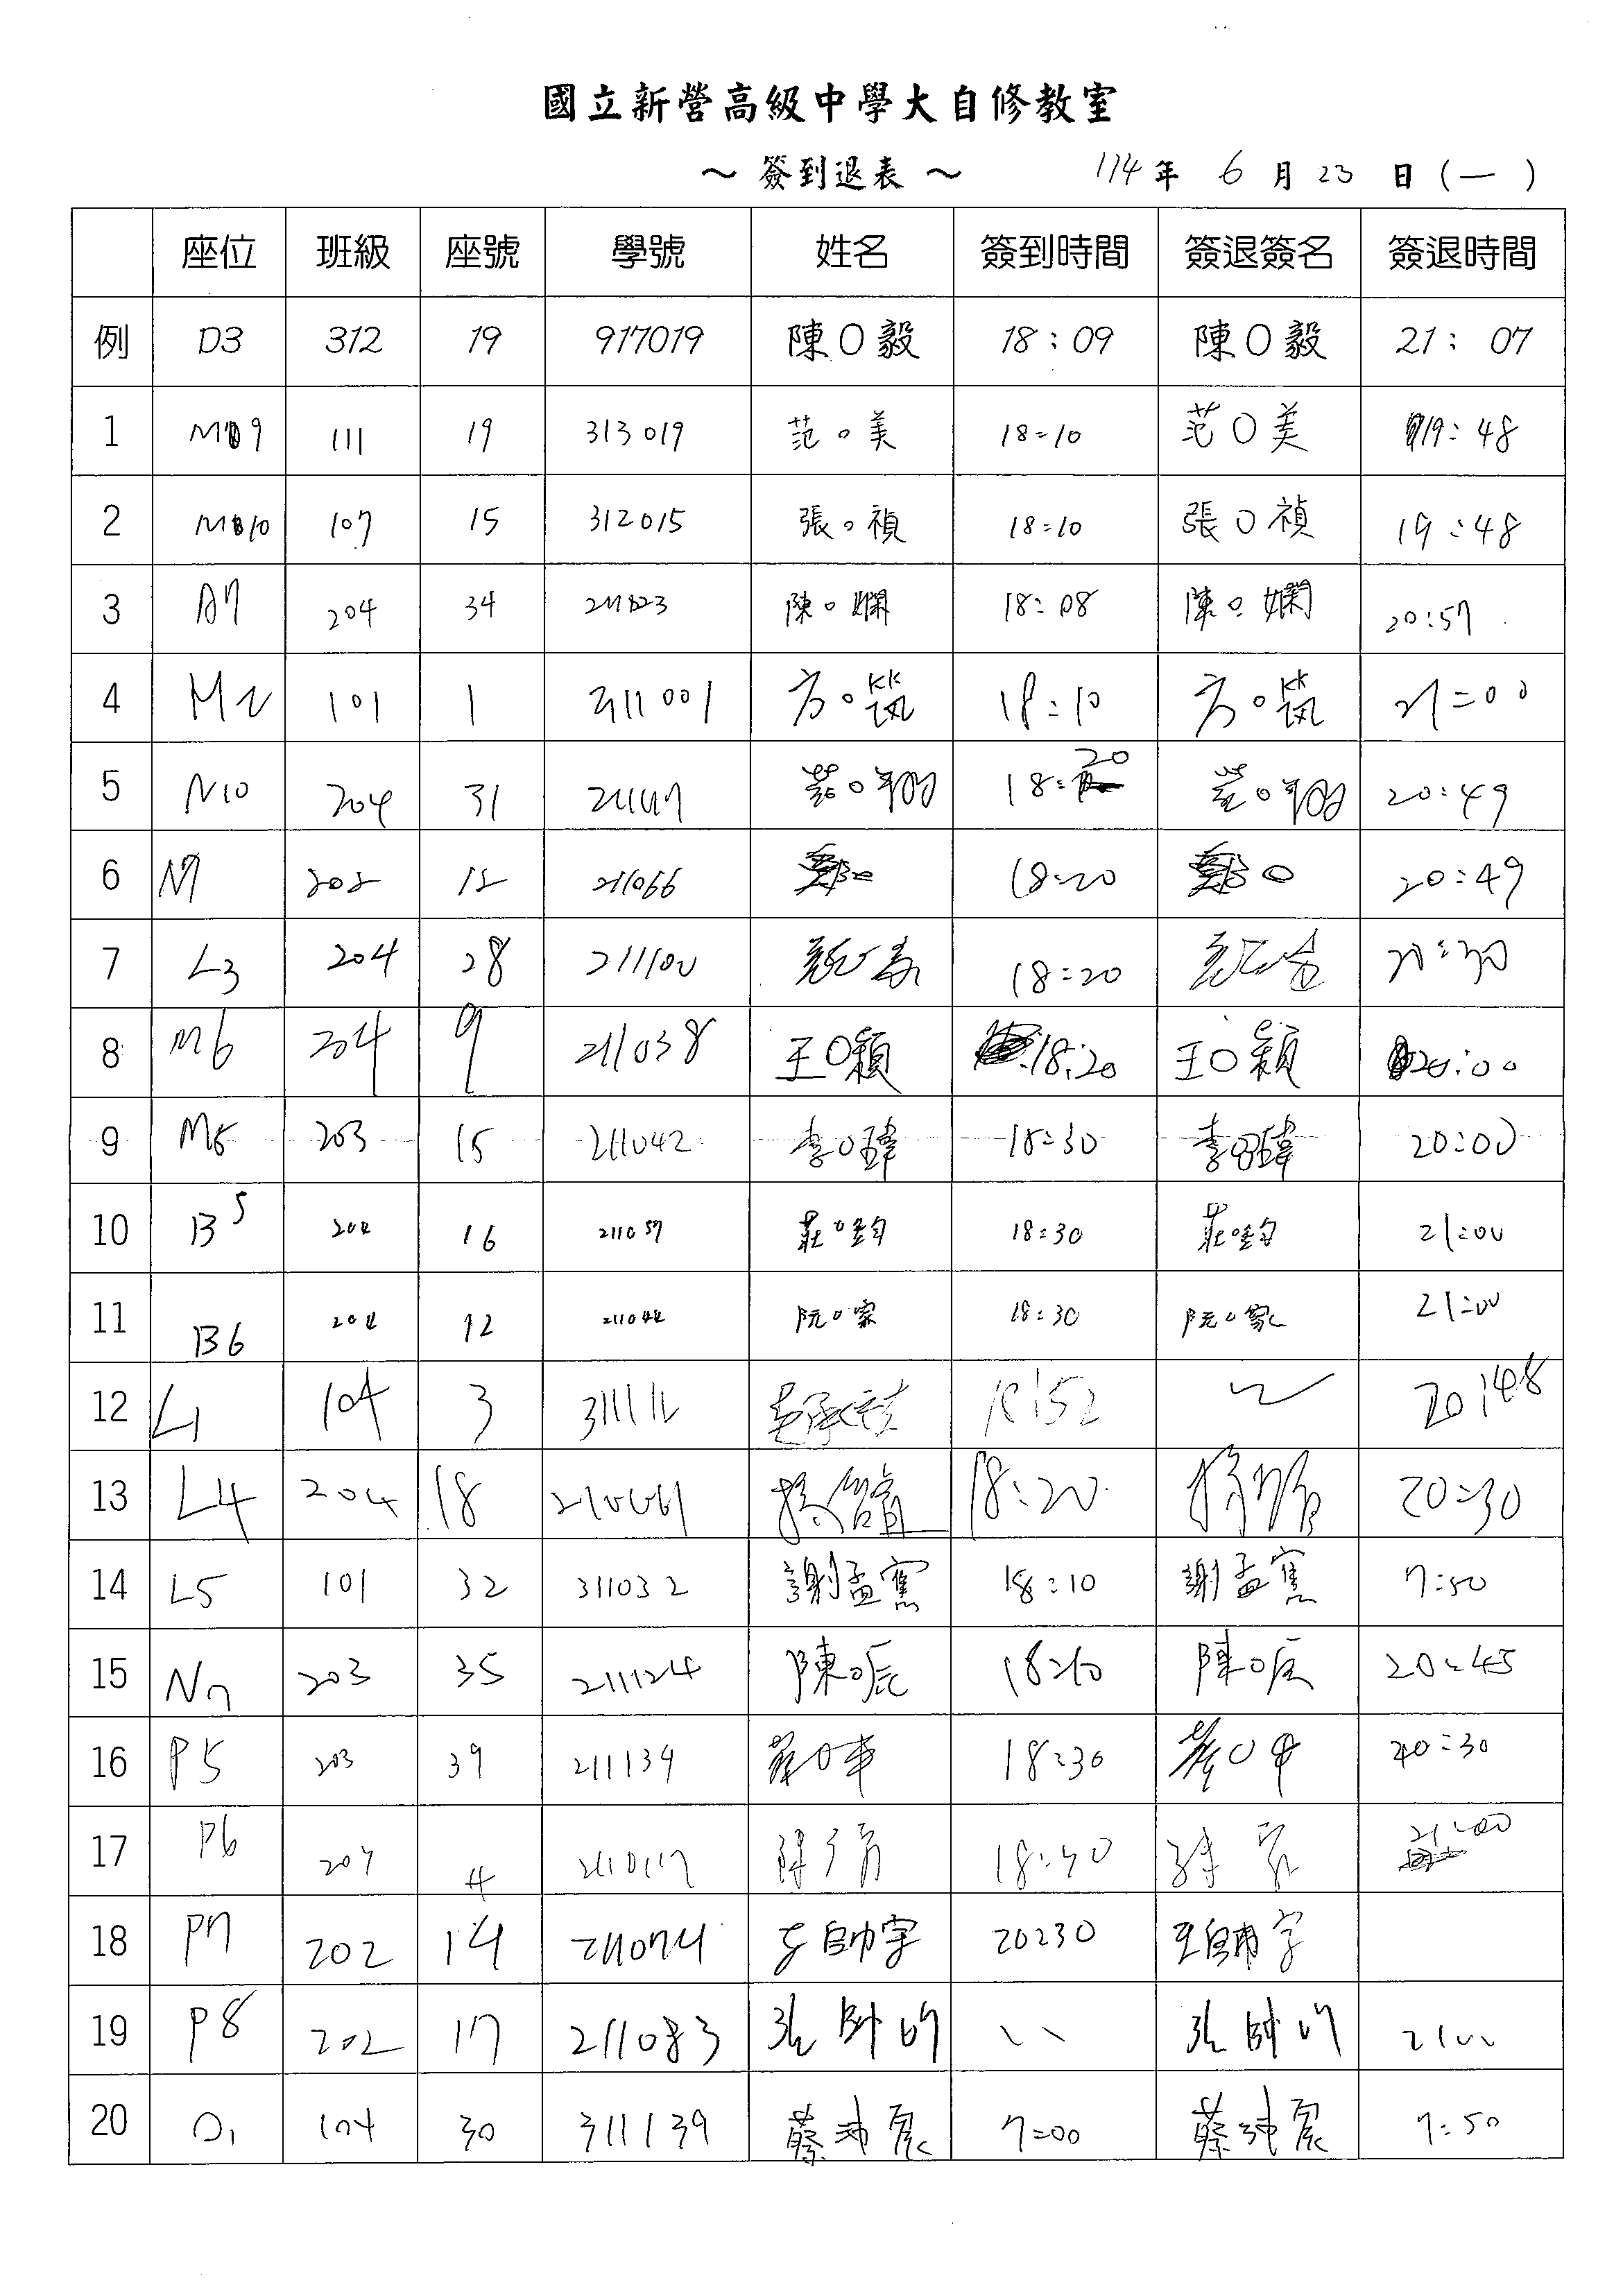 國立新營高級中學大自修教室
～ 簽到退表 ～ 114 年 6 月 23 日 (一)
座位 班級 座號 學號 姓名 簽到時間 簽退簽名 簽退時間
例 D3 312 19 917019 陳O毅 18:09 陳O毅 21:07
1 M9 111 19 313019 范O美 18:10 范O美 19:48
2 M10 107 15 312015 張O禎 18:10 張O禎 19:48
3 A7 204 34 陳O嫻 18:08 陳O嫻 20:57
4 M2 101 1 311001 方O筑 18:10 方O筑 21:00
5 N10 204 31 O翔 18:20 O翔 20:49
6 12 211066 鄭O 18:20 鄭O 20:49
7 L3 204 28 18:20
8 M6 204 9 211038 王O穎 18:20 王O穎 20:00
9 M5 203 15 211042 李O瑋 18:30 李O瑋 20:00
10 B5 204 16 211057 莊O鈞 18:30 莊O鈞 21:00
11 B6 204 12 211044 阮O家 18:30 阮O家 21:00
12 L1 104 3 18:52 20:48
13 L4 204 18 18:20 20:30
14 L5 101 32 311032 謝孟寯 18:10 謝孟寯 7:50
15 N7 203 35 211124 陳O宸 18:10 陳O宸 20:45
16 P5 203 39 211139 18:30
17 P6 4 21:00
18 P7 202 14 211074 王帥宇 20:30 王帥宇
19 P8 202 17 211083 21:00
20 O1 104 30 311139 蔡沛宸 7:00 蔡沛宸 7:50